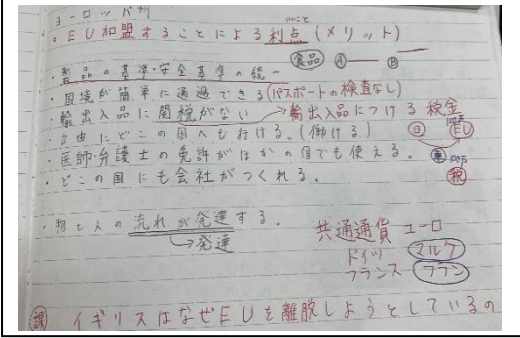 ヨーロッパ州
・EU加盟することによる利点(メリット)
いいこと
食品 A B
・製品の基準・安全基準の統一
・国境が簡単に通過できる(パスポートの検査なし)
・輸出入品に関税がない→輸出入品につける税金
・自由にどこの国へも行ける。(働ける)
日 EU
100万
・医師・弁護士の免許がほかの国でも使える。
車 100万
・どこの国にも会社がつくれる。
税
・物と人の流れが発達する。
→発達
共通通貨 ユーロ
ドイツ マルク
フランス フラン
課 イギリスはなぜEUを離脱しようとしているの